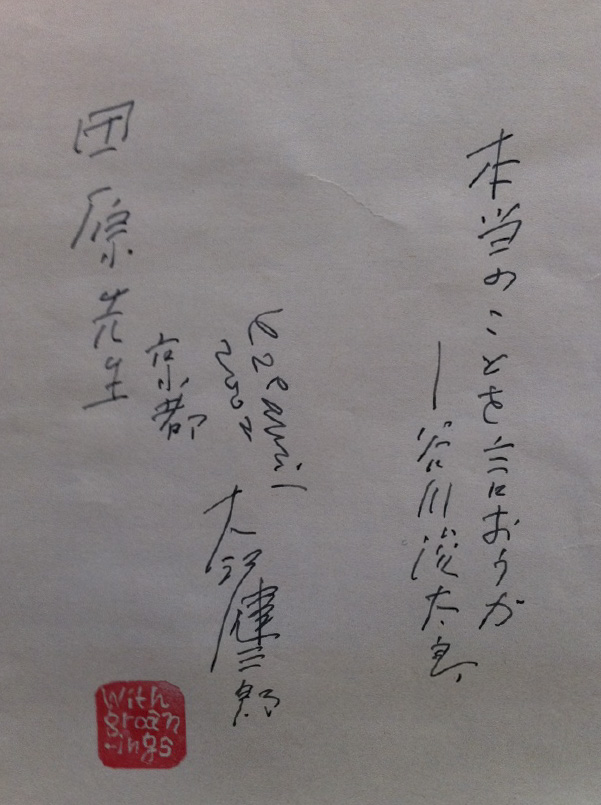 本当のことを言おうか
―谷川俊太郎
2002
大江健三郎
京都
田原先生
With
groan
-ings